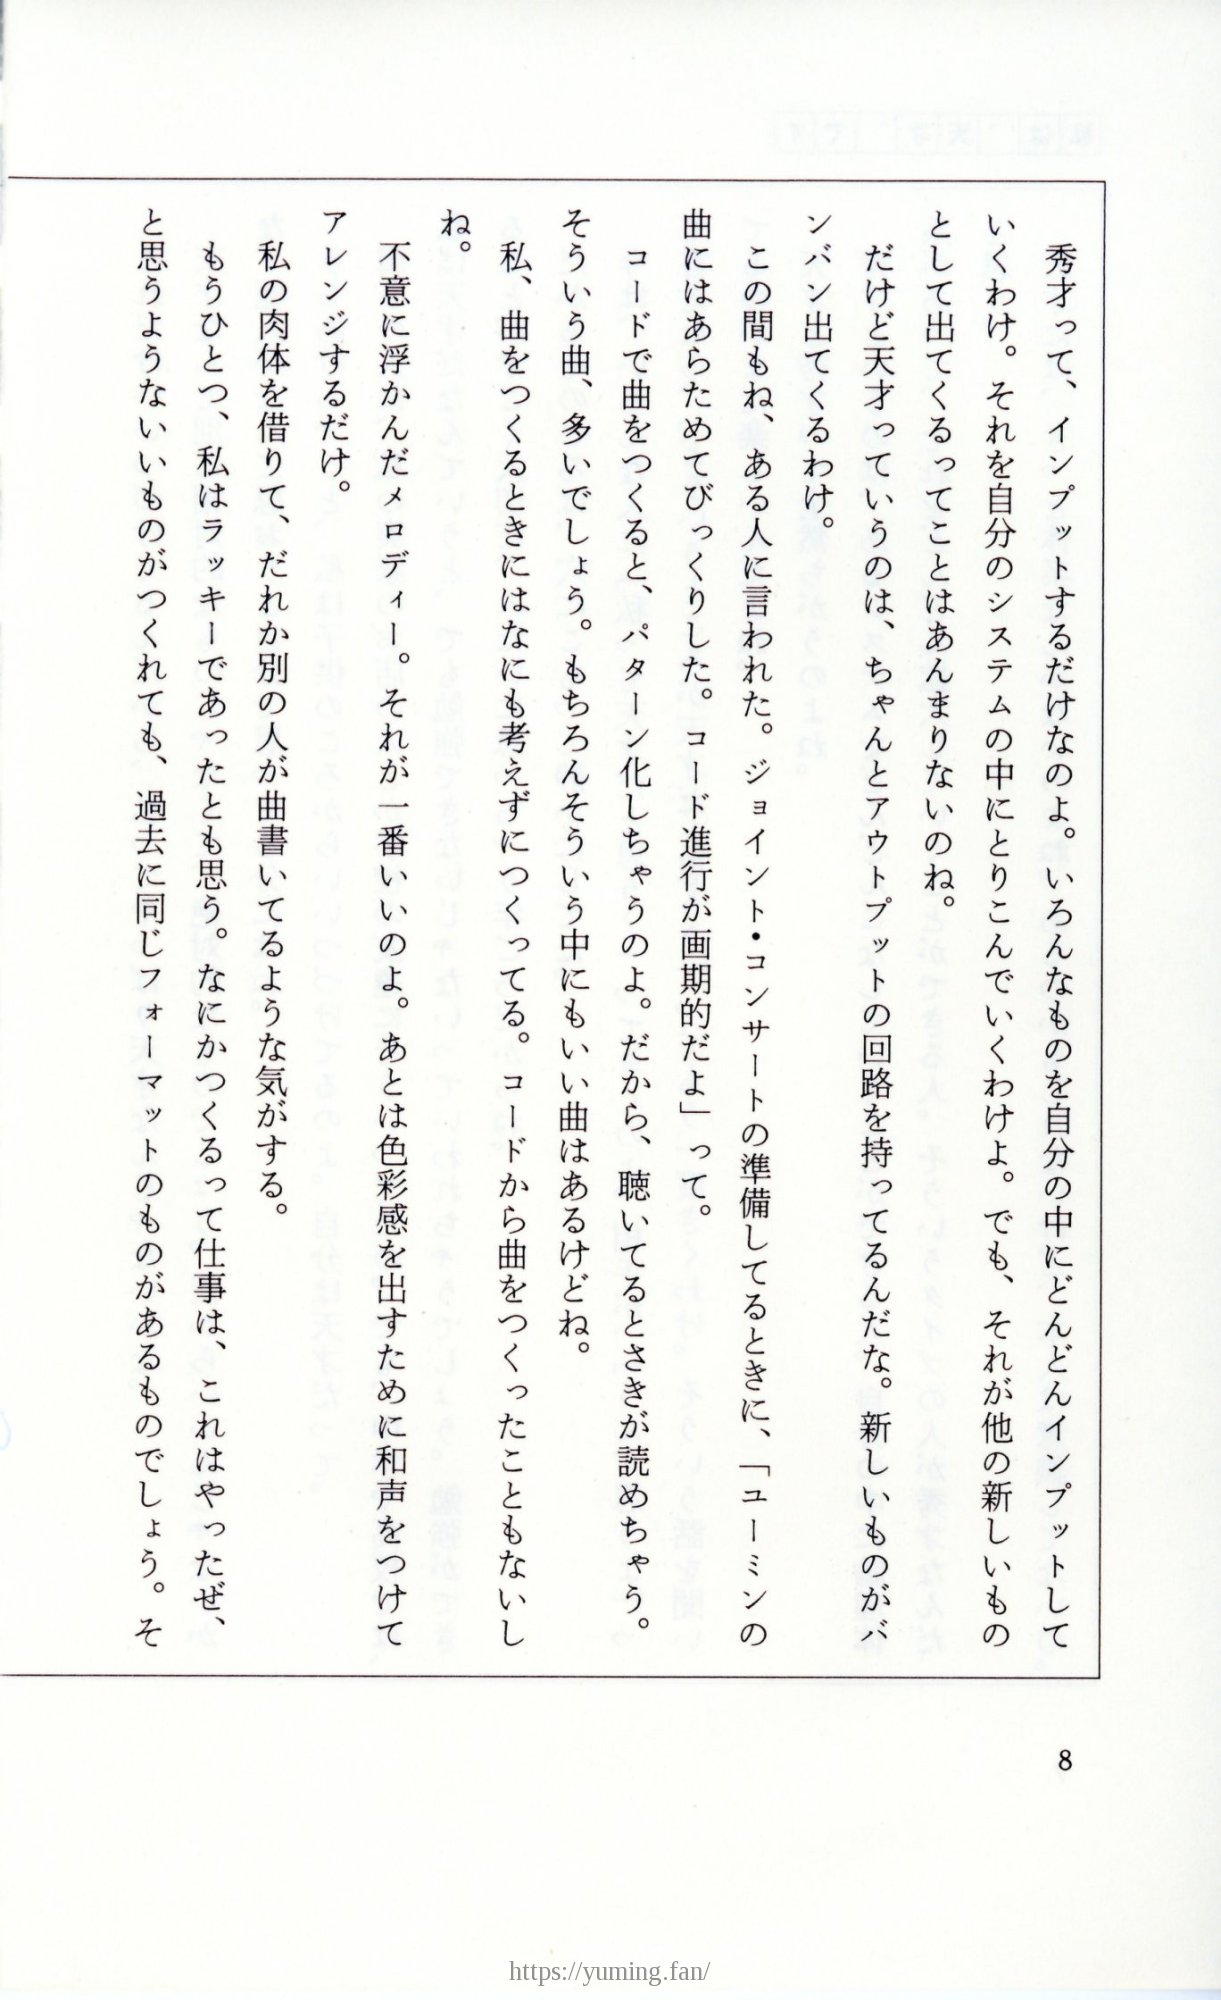 秀才って、インプットするだけなのよ。いろんなものを自分の中にどんどんインプットして
いくわけ。それを自分のシステムの中にとりこんでいくわけよ。でも、それが他の新しいもの
として出てくるってことはあんまりないのね。
だけど天才っていうのは、ちゃんとアウトプットの回路を持ってるんだな。新しいものがバ
ンバン出てくるわけ。
この間もね、ある人に言われた。ジョイント・コンサートの準備してるときに、「ユーミンの
曲にはあらためてびっくりした。コード進行が画期的だよ」って。
コードで曲をつくると、パターン化しちゃうのよ。だから、聴いてるとさきが読めちゃう。
そういう曲、多いでしょう。もちろんそういう中にもいい曲はあるけどね。
私、曲をつくるときにはなにも考えずにつくってる。コードから曲をつくったこともないし
ね。
不意に浮かんだメロディー。それが一番いいのよ。あとは色彩感を出すために和声をつけて
アレンジするだけ。
私の肉体を借りて、だれか別の人が曲書いてるような気がする。
もうひとつ、私はラッキーであったとも思う。なにかつくるって仕事は、これはやったぜ、
と思うようないいものがつくれても、過去に同じフォーマットのものがあるものでしょう。そ
8
https://yuming.fan/